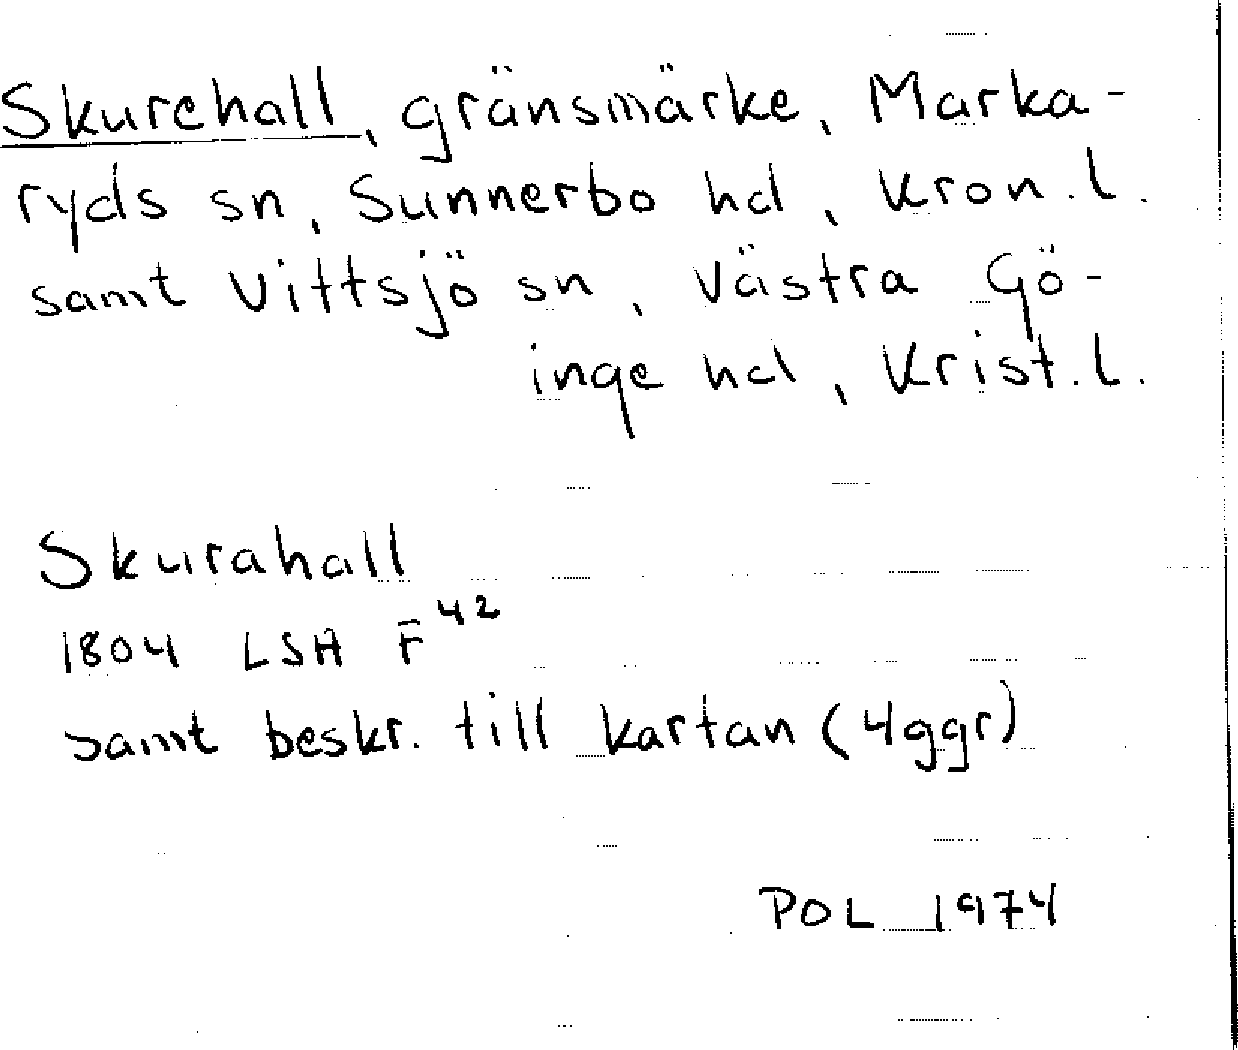 Skurehall, gränsmärke, Marka-
ryds sn, Sunnerbo hd, Kron.l.
samt Vittsjö sn, Västra Gö-
inge hd, Krist.l.
Skurahall
1804 LSH F 42
samt beskr. till kartan (4ggr)
POL 1974